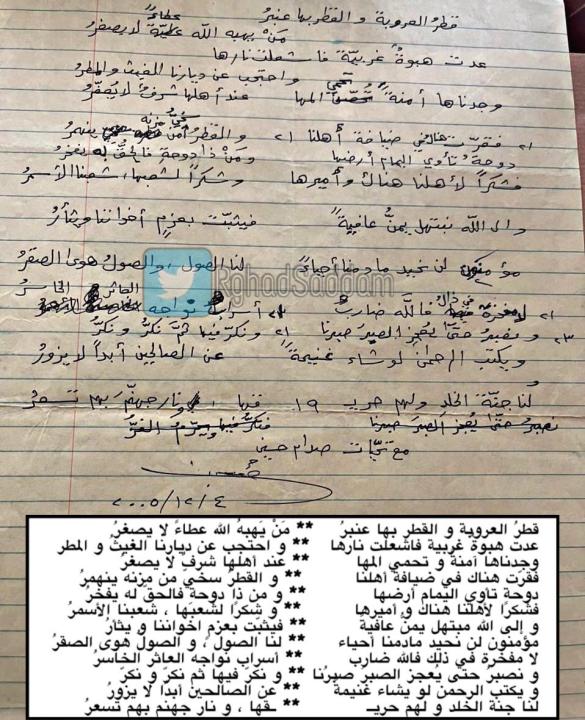 قطرُ العروبة و القطر بها عنبرُ
عطاءً
مَنْ يهبه الله عطيّة لا يصغرُ
عدت هبوةٌ غربيّة فاشعلت نارها
واحتجب عن ديارنا الغيث والمطر
وجدناها آمنةً تحمي المها عند أهلها شرفٌ لا يصغّرُ
فقرّت هناك في ضيافة أهلنا و القطرُ من مزنه ينهمرُ
دوحةٌ تأوي اليمام أرضها ومَنْ ذا دوحة فالحقّ له يفخرُ
فشكراً لأهلنا هناك وأميرها وشكراً لشعبها، شعبنا الأسمرُ
والى الله نبتهل يمنُّ عافيةً فيثبّت بعزمٍ أخواننا ويثأرُ
مؤمنون لن نحيد مادمنا أحياءً لنا الصول، والصول هوى الصقرُ
RghadSaddam
العاثر الخاسرُ
لا مفخرة في ذاك فالله ضاربٌ أسراب نواجه
ونصبرُ حتّى يُعجز الصبرَ صبرنا ونكرّ فيها ثمَّ نكرُّ ونكرُّ
ويكتب الرحمن لو شاء غنيمةً عن الصالحين أبداً لا يزورُ
لنا جنّة الخلد ولهم حريـ ١٩ ـقها، ونار جهنّم بهم تسعرُ
نصبرُ حتّى يُعجز الصبرَ صبرنا
مع تحيّات صدام حسين
٢٠٠٥/١٢/٤
قطرُ العروبة و القطر بها عنبرُ ** مَنْ يَهبهُ الله عطاءً لا يصغرُ
عدت هبوةٌ غربية فاشعلت نارها ** و احتجب عن ديارنا الغيثُ و المطر
وجدناها آمنةٌ و تحمي المها ** عند أهلها شرفٍ لا يصغرُ
فقرّت هناك في ضيافة أهلنا ** و القطرُ سخي من مزنه ينهمرُ
دوحةٍ تأوي اليمام أرضها ** و من ذا دوحة فالحق له يفخرُ
فشكراً لأهلنا هناك و أميرها ** و شكراً لشعبها ، شعبنا الأسمرُ
و إلى الله مبتهل يمنُ عافية ** فيثبت بعزمِ اخواننا و يثأرُ
مؤمنون لن نحيد مادمنا أحياء ** لنا الصول ، و الصول هوى الصقرُ
لا مفخرة في ذلك فالله ضارب ** أسرابِ نواجه العاثر الخاسرُ
و نصبر حتى يعجز الصبر صبرُنا ** و نكر فيها ثم نكرَ و نكرَ
و يكتب الرحمن لو يشاء غنيمة ** عن الصالحين أبداً لا يزورُ
لنا جنة الخلد و لهم حريـ ** ـقها ، و نار جهنم بهم تسعرُ